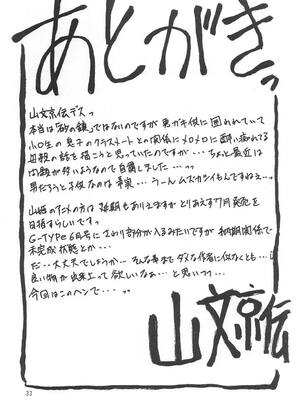 あとがきっ
山文京伝デスっ
本当は「砂の鎖」ではないのですが 男ガキ供に囲われていて
小〇生の息子のクラスメートとの関係にメロメロに酔い痴れてる
母親の話を描こうと思っていたのですが・・・ちょっと最近は
問題が多いようなので自粛しました・・・っっ
うーんムズカシイもんですねェ・・・っ
山姫のアニメの方は 延期もありえますが とりあえず7月発売を
目指すらしいです。
G-TYPE6月号に さわり部分が入るみたいですが 納期関係で
未完成状態とか・・・
だ・・大丈夫でしょうか・・・
良い物が出来上って欲しいなぁ・・・と思いつつ・・
今回はこのヘンで・・・っっ
山文京伝
33